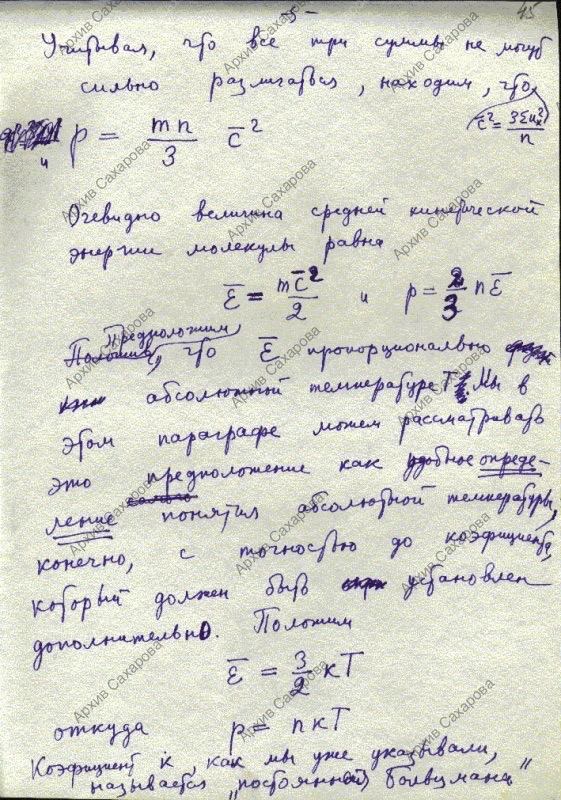 - 5 -
45
Учитывая, что все три суммы не могут
сильно различаться, находим, что
c̄² = 3Σuₓ²/n
и p = mn/3 c̄²
Очевидно величина средней кинетической
энергии молекулы равна
ε̄ = mc̄²/2 и p = 2/3 nε̄
Предположим
Положим, что ε̄ пропорционально
абсолютной температуре T. Мы в
этом параграфе можем рассматривать
это предположение как удобное опреде-
ление понятия абсолютной температуры,
конечно, с точностью до коэфициента,
который должен быть установлен
дополнительно. Положим
ε̄ = 3/2 кT
откуда p = nкT
Коэфициент к, как мы уже указывали,
называется „постоянной Больцмана"
Архив Сахарова